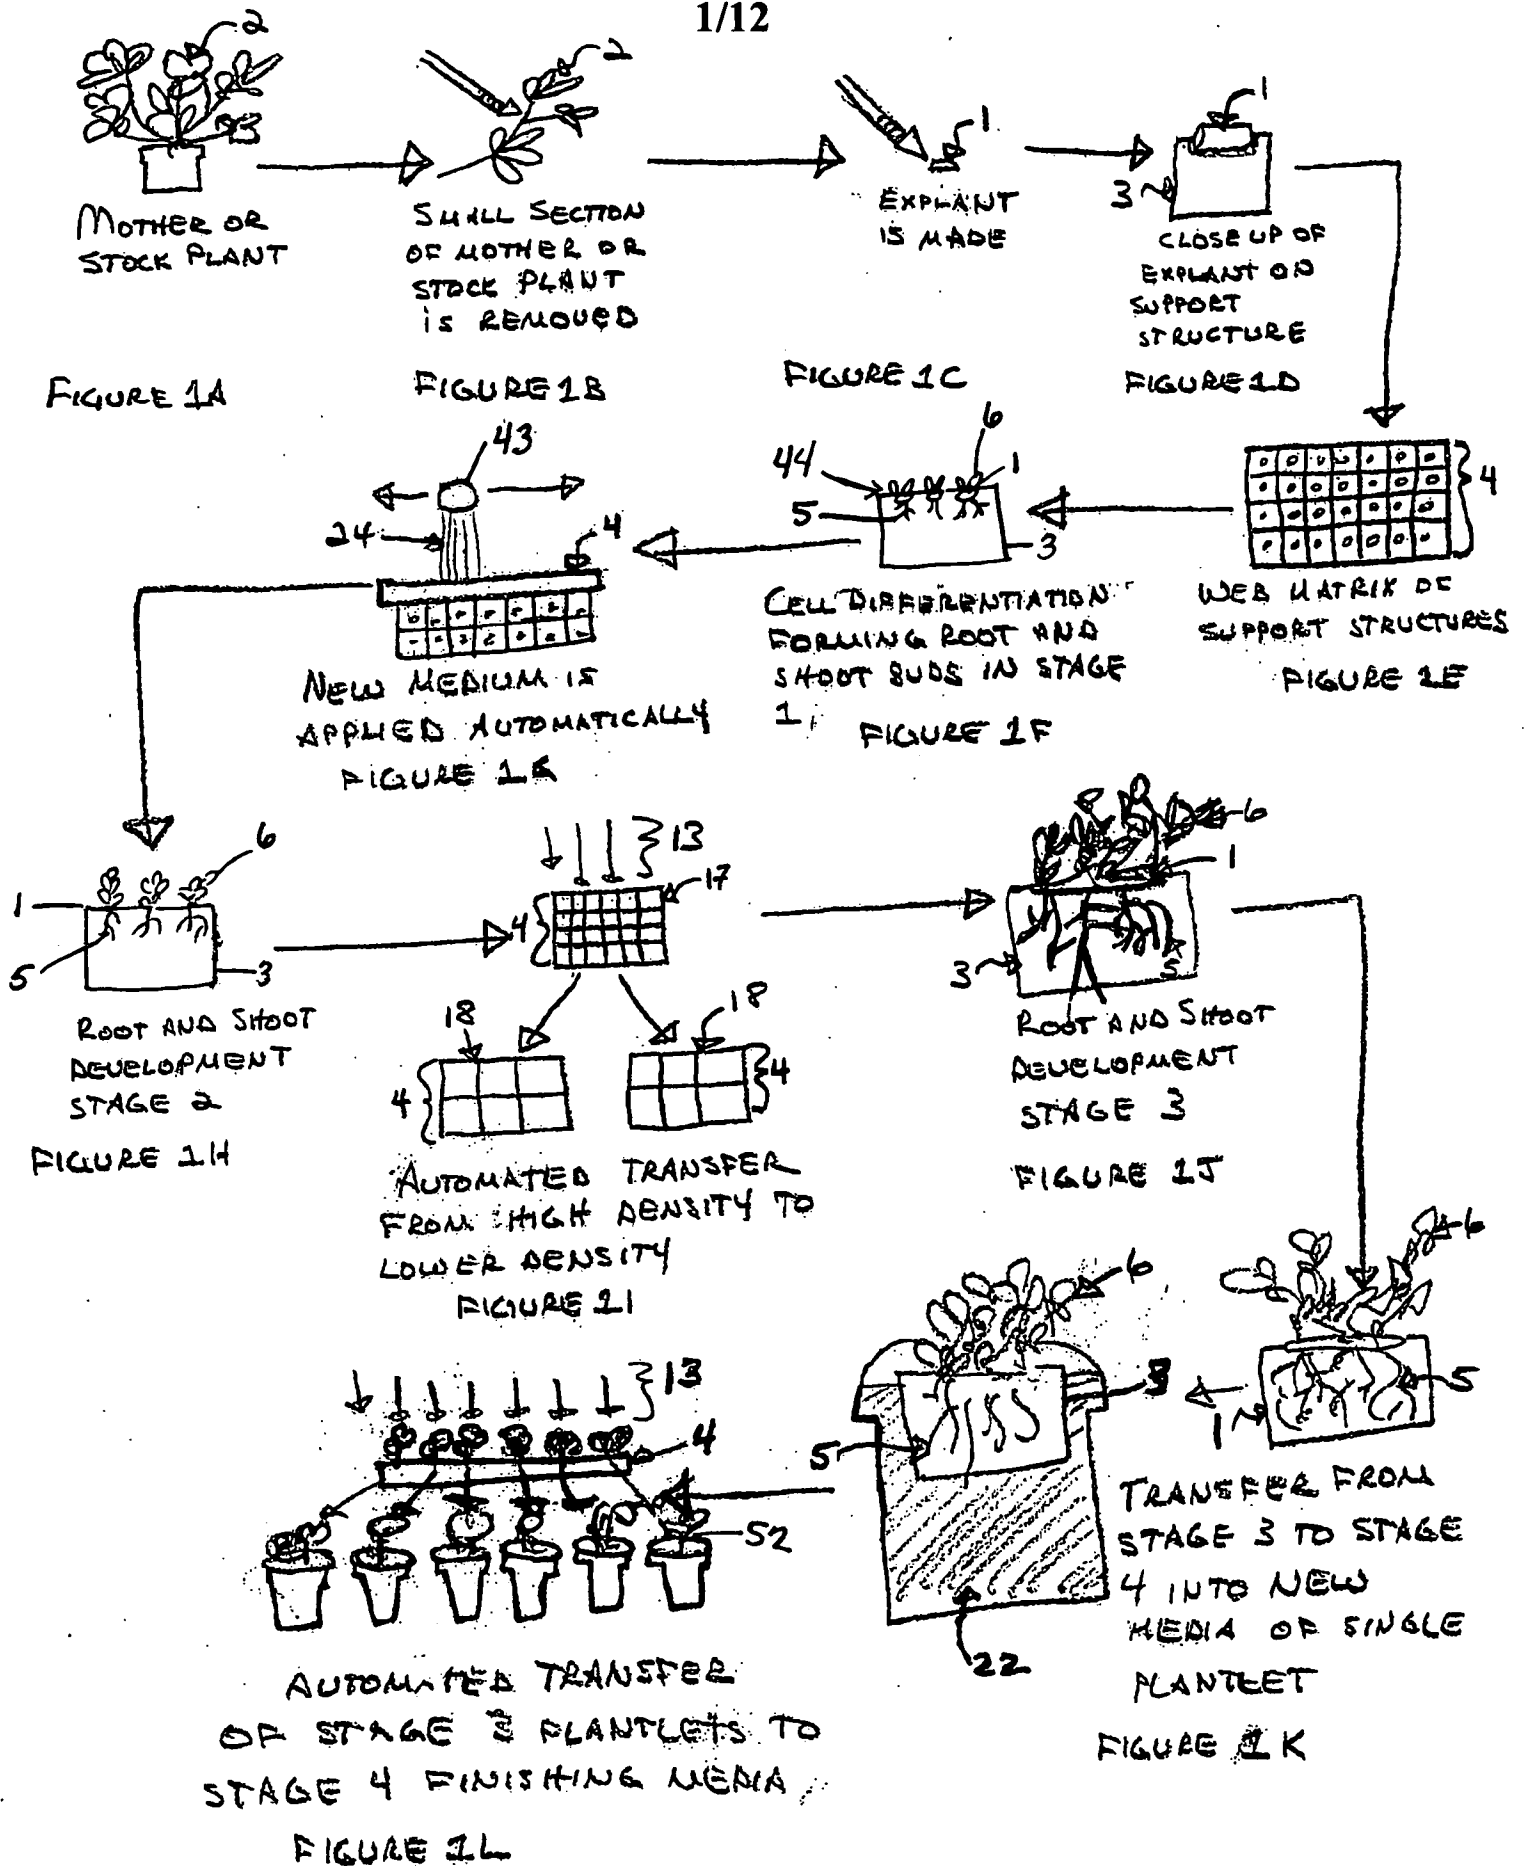 1/12
2
2
1
1
3
MOTHER OR
STOCK PLANT
FIGURE 1A
SMALL SECTION
OF MOTHER OR
STOCK PLANT
IS REMOVED
FIGURE 1B
EXPLANT
IS MADE
FIGURE 1C
CLOSE UP OF
EXPLANT ON
SUPPORT
STRUCTURE
FIGURE 1D
4
WEB MATRIX OF
SUPPORT STRUCTURES
FIGURE 1E
44
6
1
5
3
CELL DIFFERENTIATION
FORMING ROOT AND
SHOOT BUDS IN STAGE
1
FIGURE 1F
43
24
4
NEW MEDIUM IS
APPLIED AUTOMATICALLY
FIGURE 1G
6
1
5
3
ROOT AND SHOOT
DEVELOPMENT
STAGE 2
FIGURE 1H
13
17
4
18
18
4
4
AUTOMATED TRANSFER
FROM HIGH DENSITY TO
LOWER DENSITY
FIGURE 1I
6
1
3
5
ROOT AND SHOOT
DEVELOPMENT
STAGE 3
FIGURE 1J
6
5
1
TRANSFER FROM
STAGE 3 TO STAGE
4 INTO NEW
MEDIA OF SINGLE
PLANTLET
FIGURE 1K
6
3
5
22
13
4
52
AUTOMATED TRANSFER
OF STAGE 3 PLANTLETS TO
STAGE 4 FINISHING MEDIA
FIGURE 1L